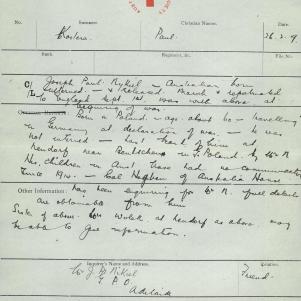 No.
Surname.
Christian Name.
Date.
Paul.
26.2.19
Rank.
Regiment, &c.
C/L Joseph Paul Nykiel – Australian born
interned – & released March & repatriated
to England Sept 1st 1918 was with above at
beginning of war.
Born in Poland – age about 60 – travelling
in Germany at declaration of war. – He was
not interned – has heard of him at
Neudorf near Bentschen in G. Poland by Mr N
No. children in Aust. have had no communication
since 1914. – Col of Australia House
Other Information: has been enquiring for Mr N. full details
are obtainable from him
Sister of above Mrs at Neudorf as above may
be able to give information.
Inquirer's Name and Address.
Relation:
Mr J. P. Nikiel
G.P.O.
Adelaide
Friend